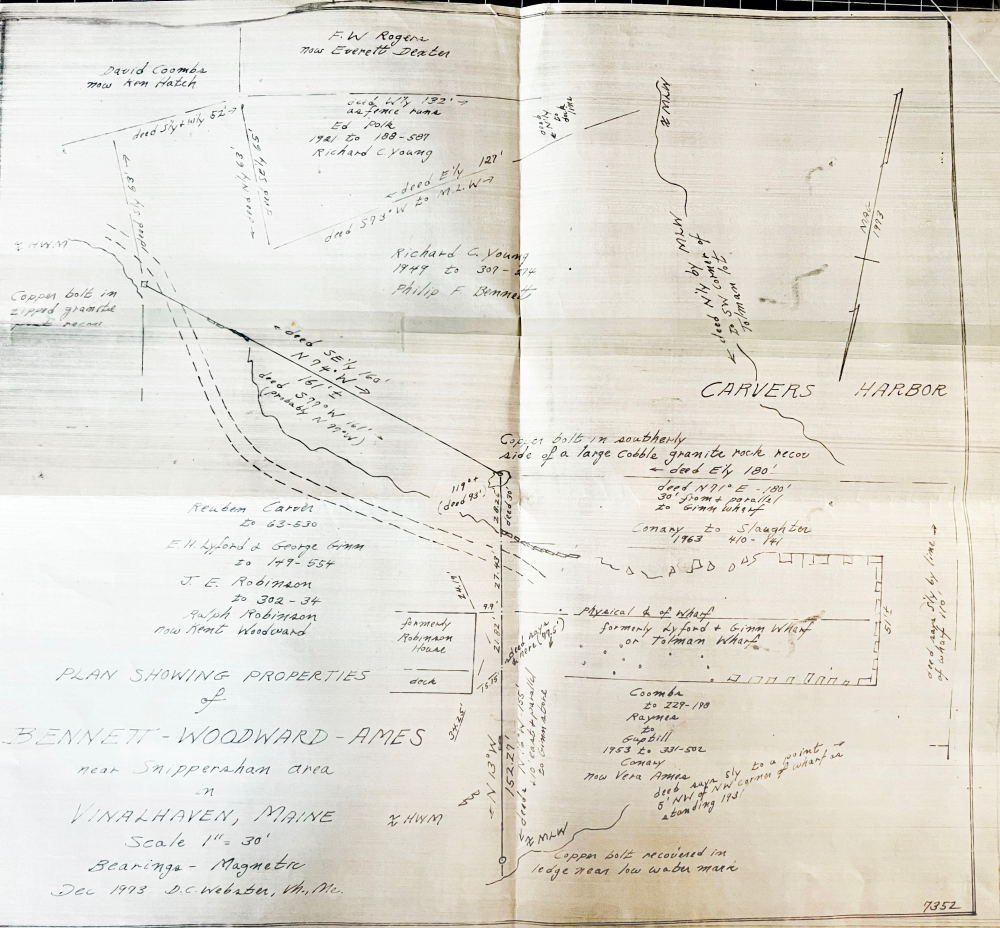 F. W. Rogers
now Everett Dexter
David Coombs
now Ken Hatch
deed W'ly 132' →
as fence runs
Ed Polk
1921 to 188-587
Richard C. Young
deed S'ly + W'ly 52' →
deed N'ly 63'
deed S'ly 63'
← deed E'ly 127'
deed S73°W to M.L.W →
≈ MLW
Mag
1973
≈ H.W.M
Copper bolt in
zipped granite
recov
Richard C. Young
1949 to 307-
Philip F. Bennett
← deed N'ly by MLW
to SW corner of
Tolman lot
← deed SE'ly 160'
N 74° W →
161' ±
deed S77°W 161' →
(probably N77°W)
CARVERS HARBOR
Copper bolt in southerly
side of a large Cobble granite rock recov
← deed E'ly 180'
deed N71°E - 180'
30' from + parallel
to Ginn Wharf
Conary to Slaughter
1963 410-141
119' ±
(deed 93')
28.26'
deed 30'
27.43'
Reuben Carver
to 63-530
E.H. Lyford & George Ginn
to 149-554
J. E. Robinson
to 302-34
Ralph Robinson
now Kent Woodward
24.19'
9.9'
21.82'
formerly
Robinson
House
deck
15.75'
34.35'
Physical ℄ of Wharf
formerly Lyford & Ginn Wharf
or Tolman Wharf
51' ±
deed says S'ly by line →
of wharf 110'
PLAN SHOWING PROPERTIES
of
BENNETT-WOODWARD-AMES
near Snippershan area
in
VINALHAVEN, MAINE
Scale 1" = 30'
Bearings - Magnetic
Dec 1973 D.C. Webster, Vh., Me.
← N 13° W
152.27'
to Ginn store
Coombs
to 229-198
Raynes
to
Guptill
1953 to 331-502
Conary
now Vera Ames
deed says Sly to a point →
5' NW of NW corner of wharf as
standing 1931
≈ HWM
≈ MLW
Copper bolt recovered in
ledge near low water mark
7352